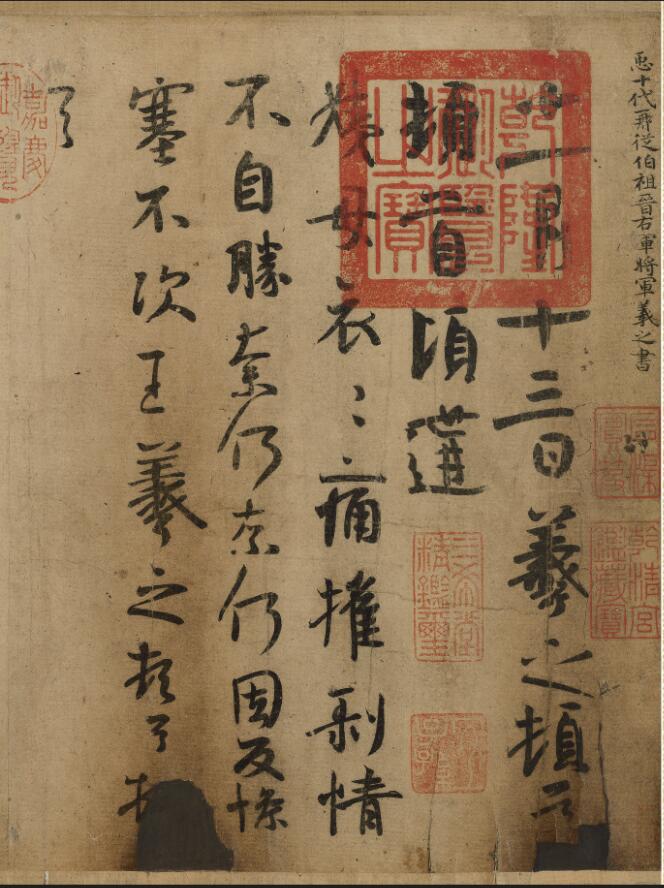 𢘑十代再從伯祖晉右軍將軍羲之書
十一月十三日羲之頓首
頓首頃遘
姨母哀〻痛摧剝情
不自勝奈何奈何因反慘
塞不次王羲之頓首頓
首
乾隆御覽之寶
乾清宮鑒藏寶
三希堂精鑑璽
宜子孫
嘉慶御覽